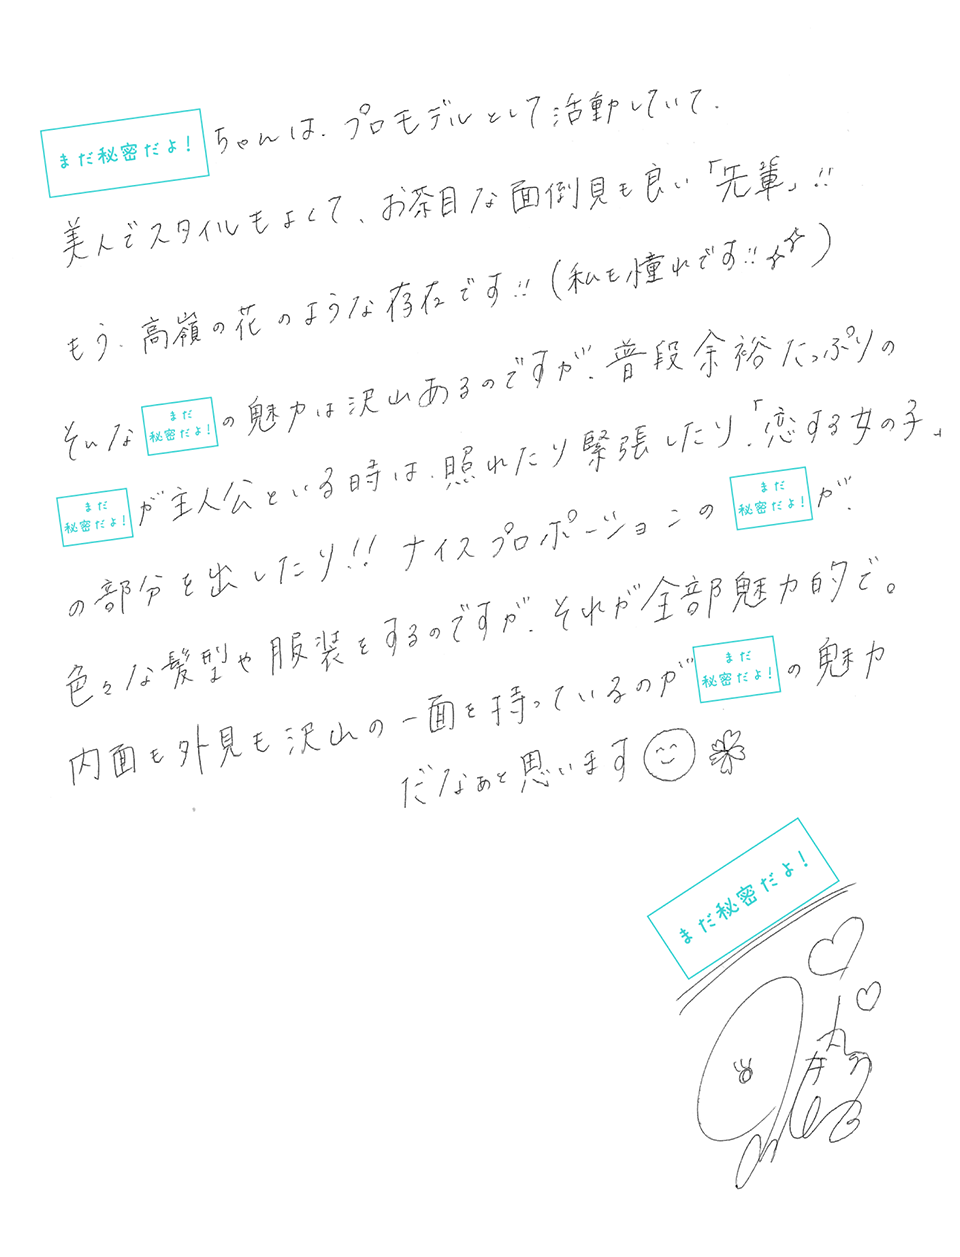 まだ秘密だよ！ちゃんは、プロモデルとして活動していて、
美人でスタイルもよくて、お茶目な面倒見も良い「先輩」!!
もう、高嶺の花のような存在です!!(私も憧れです!!)
そんなまだ秘密だよ！の魅力は沢山あるのですが、普段余裕たっぷりの
まだ秘密だよ！が主人公といる時は、照れたり緊張したり、「恋する女の子」
の部分を出したり!! ナイスプロポーションのまだ秘密だよ！が、
色々な髪型や服装をするのですが、それが全部魅力的で。
内面も外見も沢山の一面を持っているのがまだ秘密だよ！の魅力
だなぁと思います
まだ秘密だよ！